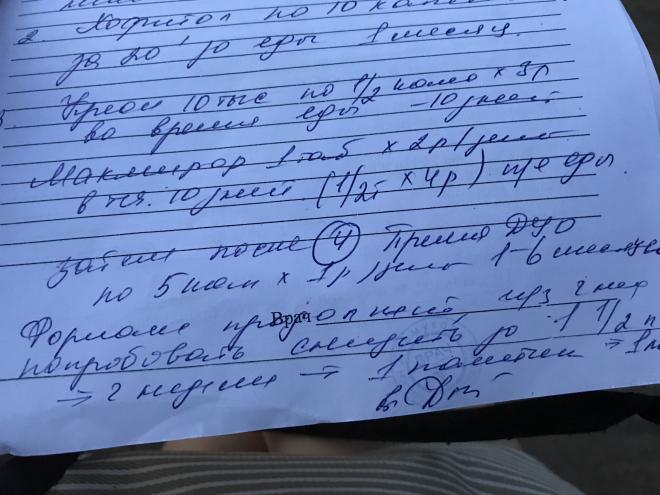 2. Хофитол по 10 капель
за 20' до еды 1 месяц.
Креон 10 тыс по 1/2 капс х 3р
во время еды - 10 дней
Макмирор 1 таб х 2р/день
в теч. 10 дней (1/2т х 4р) п/е еды
затем после 4 Према ДУО
по 5 кап х 1р/день 1-6 месяцев
Врач
продолжить, чрз 2 нед
попробовать снизить до 1 1/2 п
→ 2 недели → 1 пакетик →